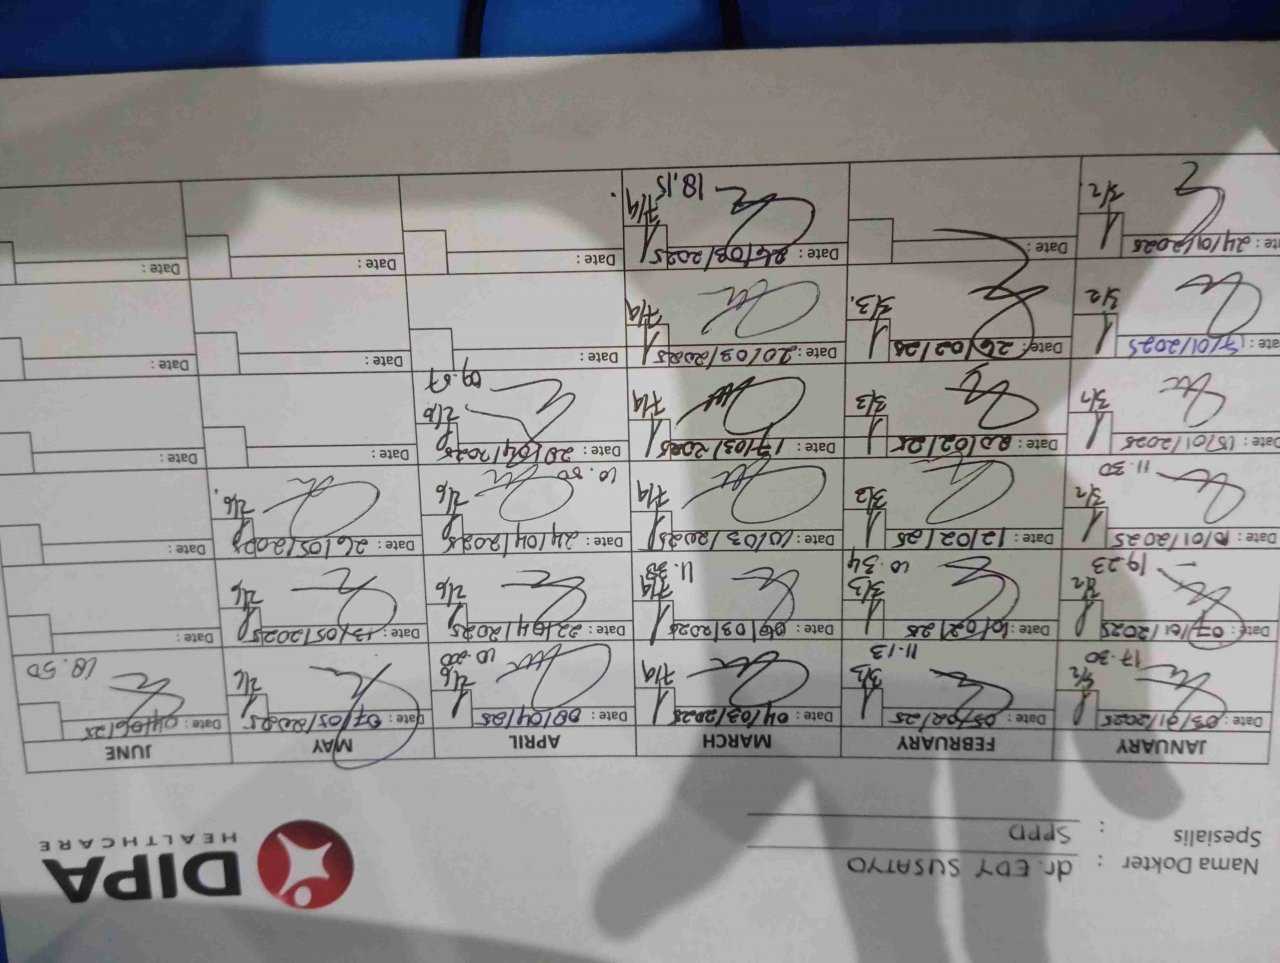 Nama Dokter : dr. EDY SUSATYO
Spesialis : SPPD
DIPA
HEALTHCARE
JANUARY FEBRUARY MARCH APRIL MAY JUNE
Date: 03/01/2025 Date: 05/02/25 Date: 04/03/2025 Date: 08/04/25 Date: 07/05/2025 Date: 04/06/25
17.30 5/2 11.13 3/3 7/4 10.20 2/6 10.50
Date: 07/01/2025 Date: 10/02/25 Date: 06/03/2025 Date: 22/04/2025 Date: 13/05/2025 Date:
19.23 10.34 3/3 11.33 7/4 2/6 2/6
Date: 10/01/2025 Date: 12/02/25 Date: 10/03/2025 Date: 24/04/2025 Date: 26/05/2025 Date:
11.30 3/2 7/4 10.50 2/6 2/6
Date: 15/01/2025 Date: 20/02/25 Date: 17/03/2025 Date: 28/04/2025 Date: Date:
3/3 7/4 09.57 2/6
Date: /01/2025 Date: 26/02/25 Date: 20/03/2025 Date: Date: Date:
3/2 3/3 7/4
Date: 24/01/2025 Date: Date: 26/03/2025 Date: Date: Date:
3/2 18.15 7/4